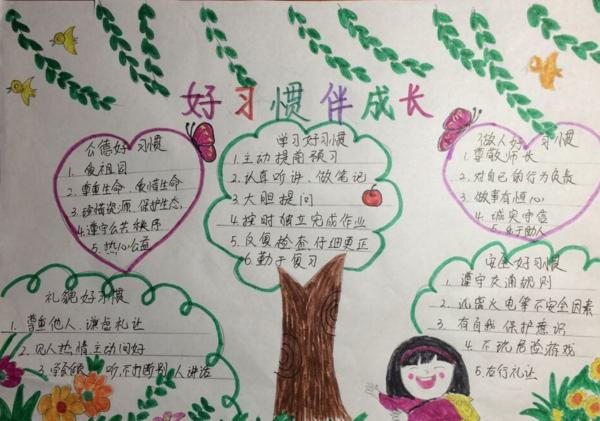 好习惯伴成长
公德好习惯
1. 爱祖国
2. 尊重生命、爱惜生命
3. 珍惜资源、保护生态,
4. 遵守公共秩序
5. 热心公益
学习好习惯
1. 主动提前预习
2. 认真听讲、做笔记
3. 大胆提问
4. 按时独立完成作业
5. 反复检查、仔细更正
6. 勤于复习
做人好习惯
1. 尊敬师长
2. 对自己的行为负责
3. 做事有恒心
4. 诚实守信
5. 乐于助人
礼貌好习惯
1. 尊重他人、谦虚礼让
2. 见人热情主动问好
3. 听,不打断别人讲话
安全好习惯
1. 遵守交通规则
2. 火电等不安全因素
3. 有自我保护意识
4. 不玩危险游戏
5. 右行礼让